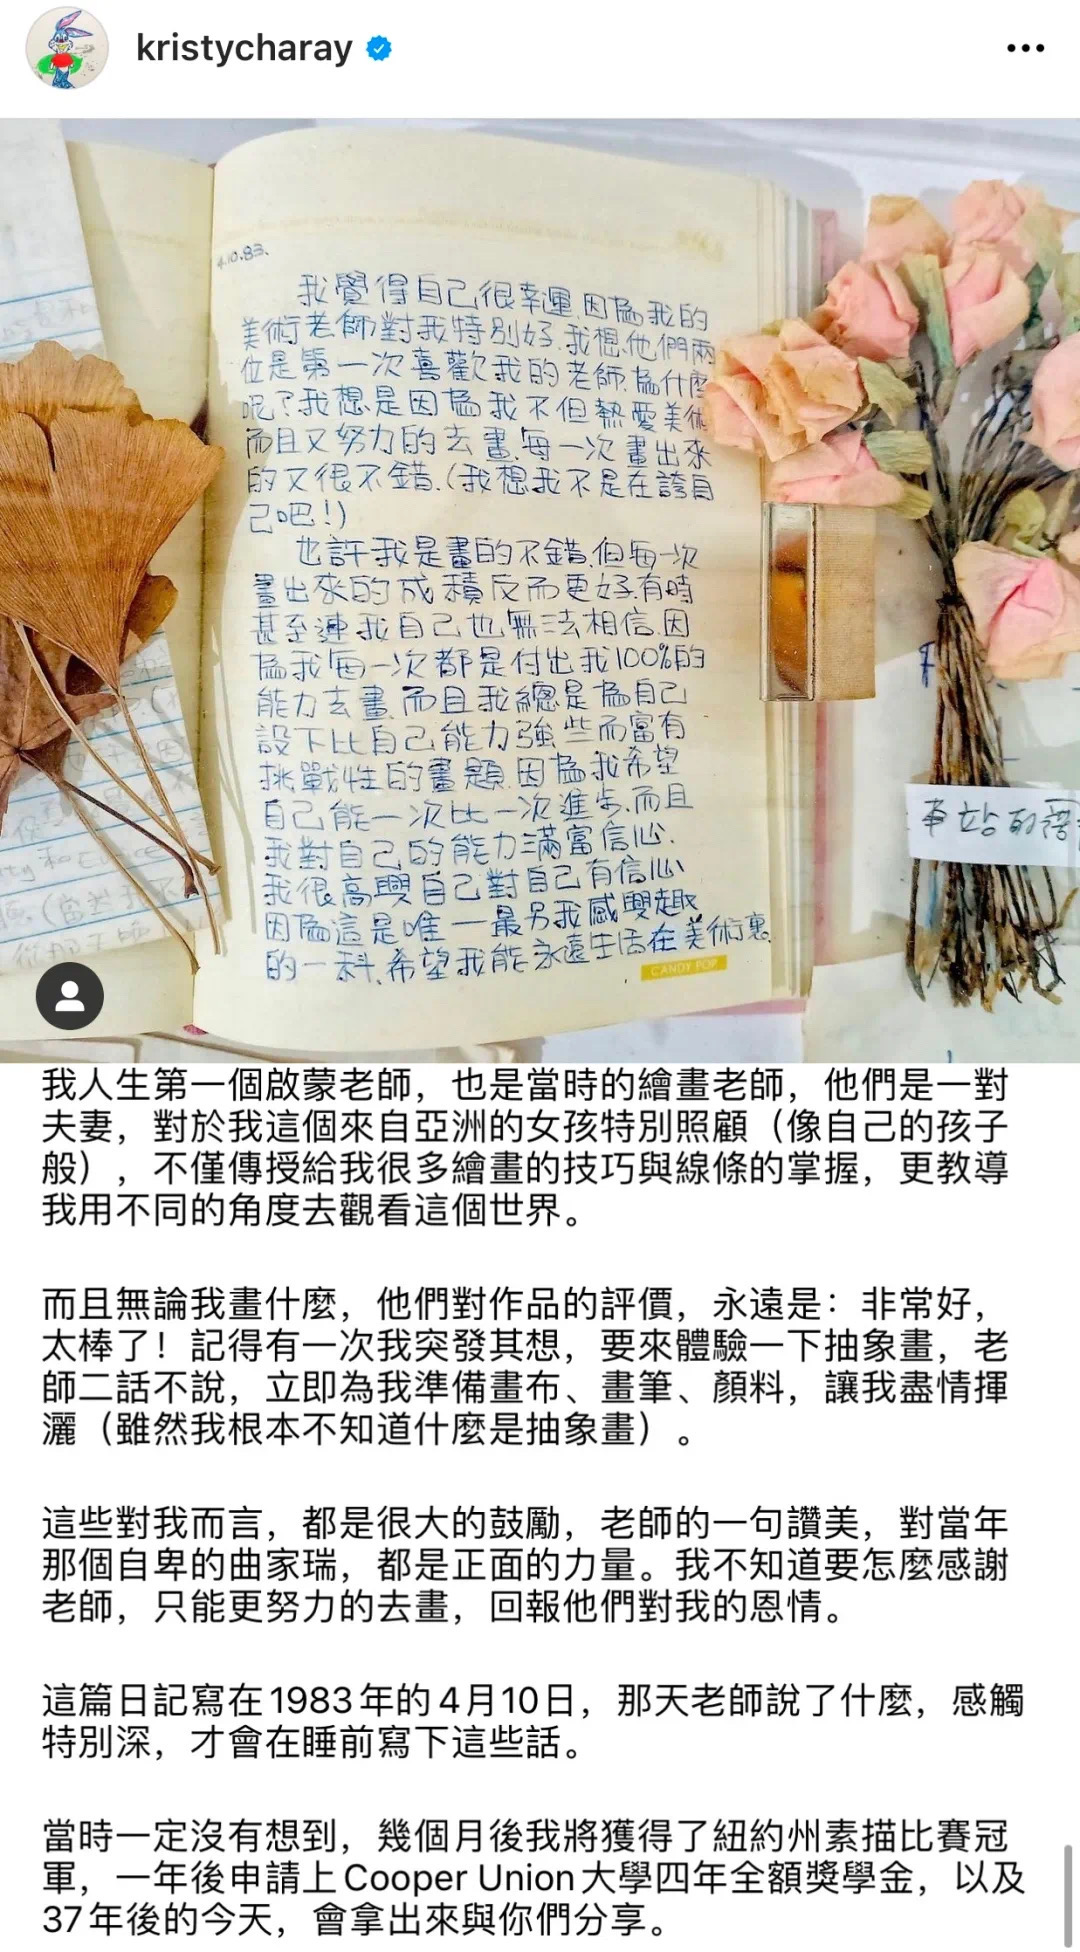 kristycharay
4.10.83.
我覺得自己很幸運.因為我的
美術老師對我特別好.我想.他們兩
位是第一次喜歡我的老師.為什麼
呢?我想是因為我不但熱愛美術
而且又努力的去畫.每一次畫出來
的又很不錯.(我想我不是在誇自
己吧!)
也許我是畫的不錯.但每一次
畫出來的成積反而更好.有時
甚至連我自己也無法相信.因
為我每一次都是付出我100%的
能力去畫.而且我總是為自己
設下比自己能力強些而富有
挑戰性的畫題.因為我希望
自己能一次比一次進步.而且
我對自己的能力滿富信心.
我很高興自己對自己有信心
因為這是唯一最另我感興趣
的一科.希望我能永遠生活在美術裏.
CANDY POP
車站的
我人生第一個啟蒙老師，也是當時的繪畫老師，他們是一對
夫妻，對於我這個來自亞洲的女孩特別照顧（像自己的孩子
般），不僅傳授給我很多繪畫的技巧與線條的掌握，更教導
我用不同的角度去觀看這個世界。
而且無論我畫什麼，他們對作品的評價，永遠是：非常好，
太棒了！記得有一次我突發其想，要來體驗一下抽象畫，老
師二話不說，立即為我準備畫布、畫筆、顏料，讓我盡情揮
灑（雖然我根本不知道什麼是抽象畫）。
這些對我而言，都是很大的鼓勵，老師的一句讚美，對當年
那個自卑的曲家瑞，都是正面的力量。我不知道要怎麼感謝
老師，只能更努力的去畫，回報他們對我的恩情。
這篇日記寫在1983年的4月10日，那天老師說了什麼，感觸
特別深，才會在睡前寫下這些話。
當時一定沒有想到，幾個月後我將獲得了紐約州素描比賽冠
軍，一年後申請上Cooper Union大學四年全額獎學金，以及
37年後的今天，會拿出來與你們分享。